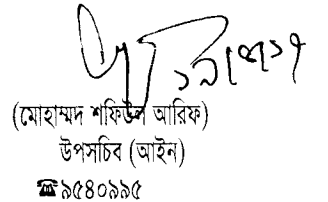 (মোহাম্মদ শফিউল আরিফ)
উপসচিব (আইন)
☎৯৫৪০৯৯৫